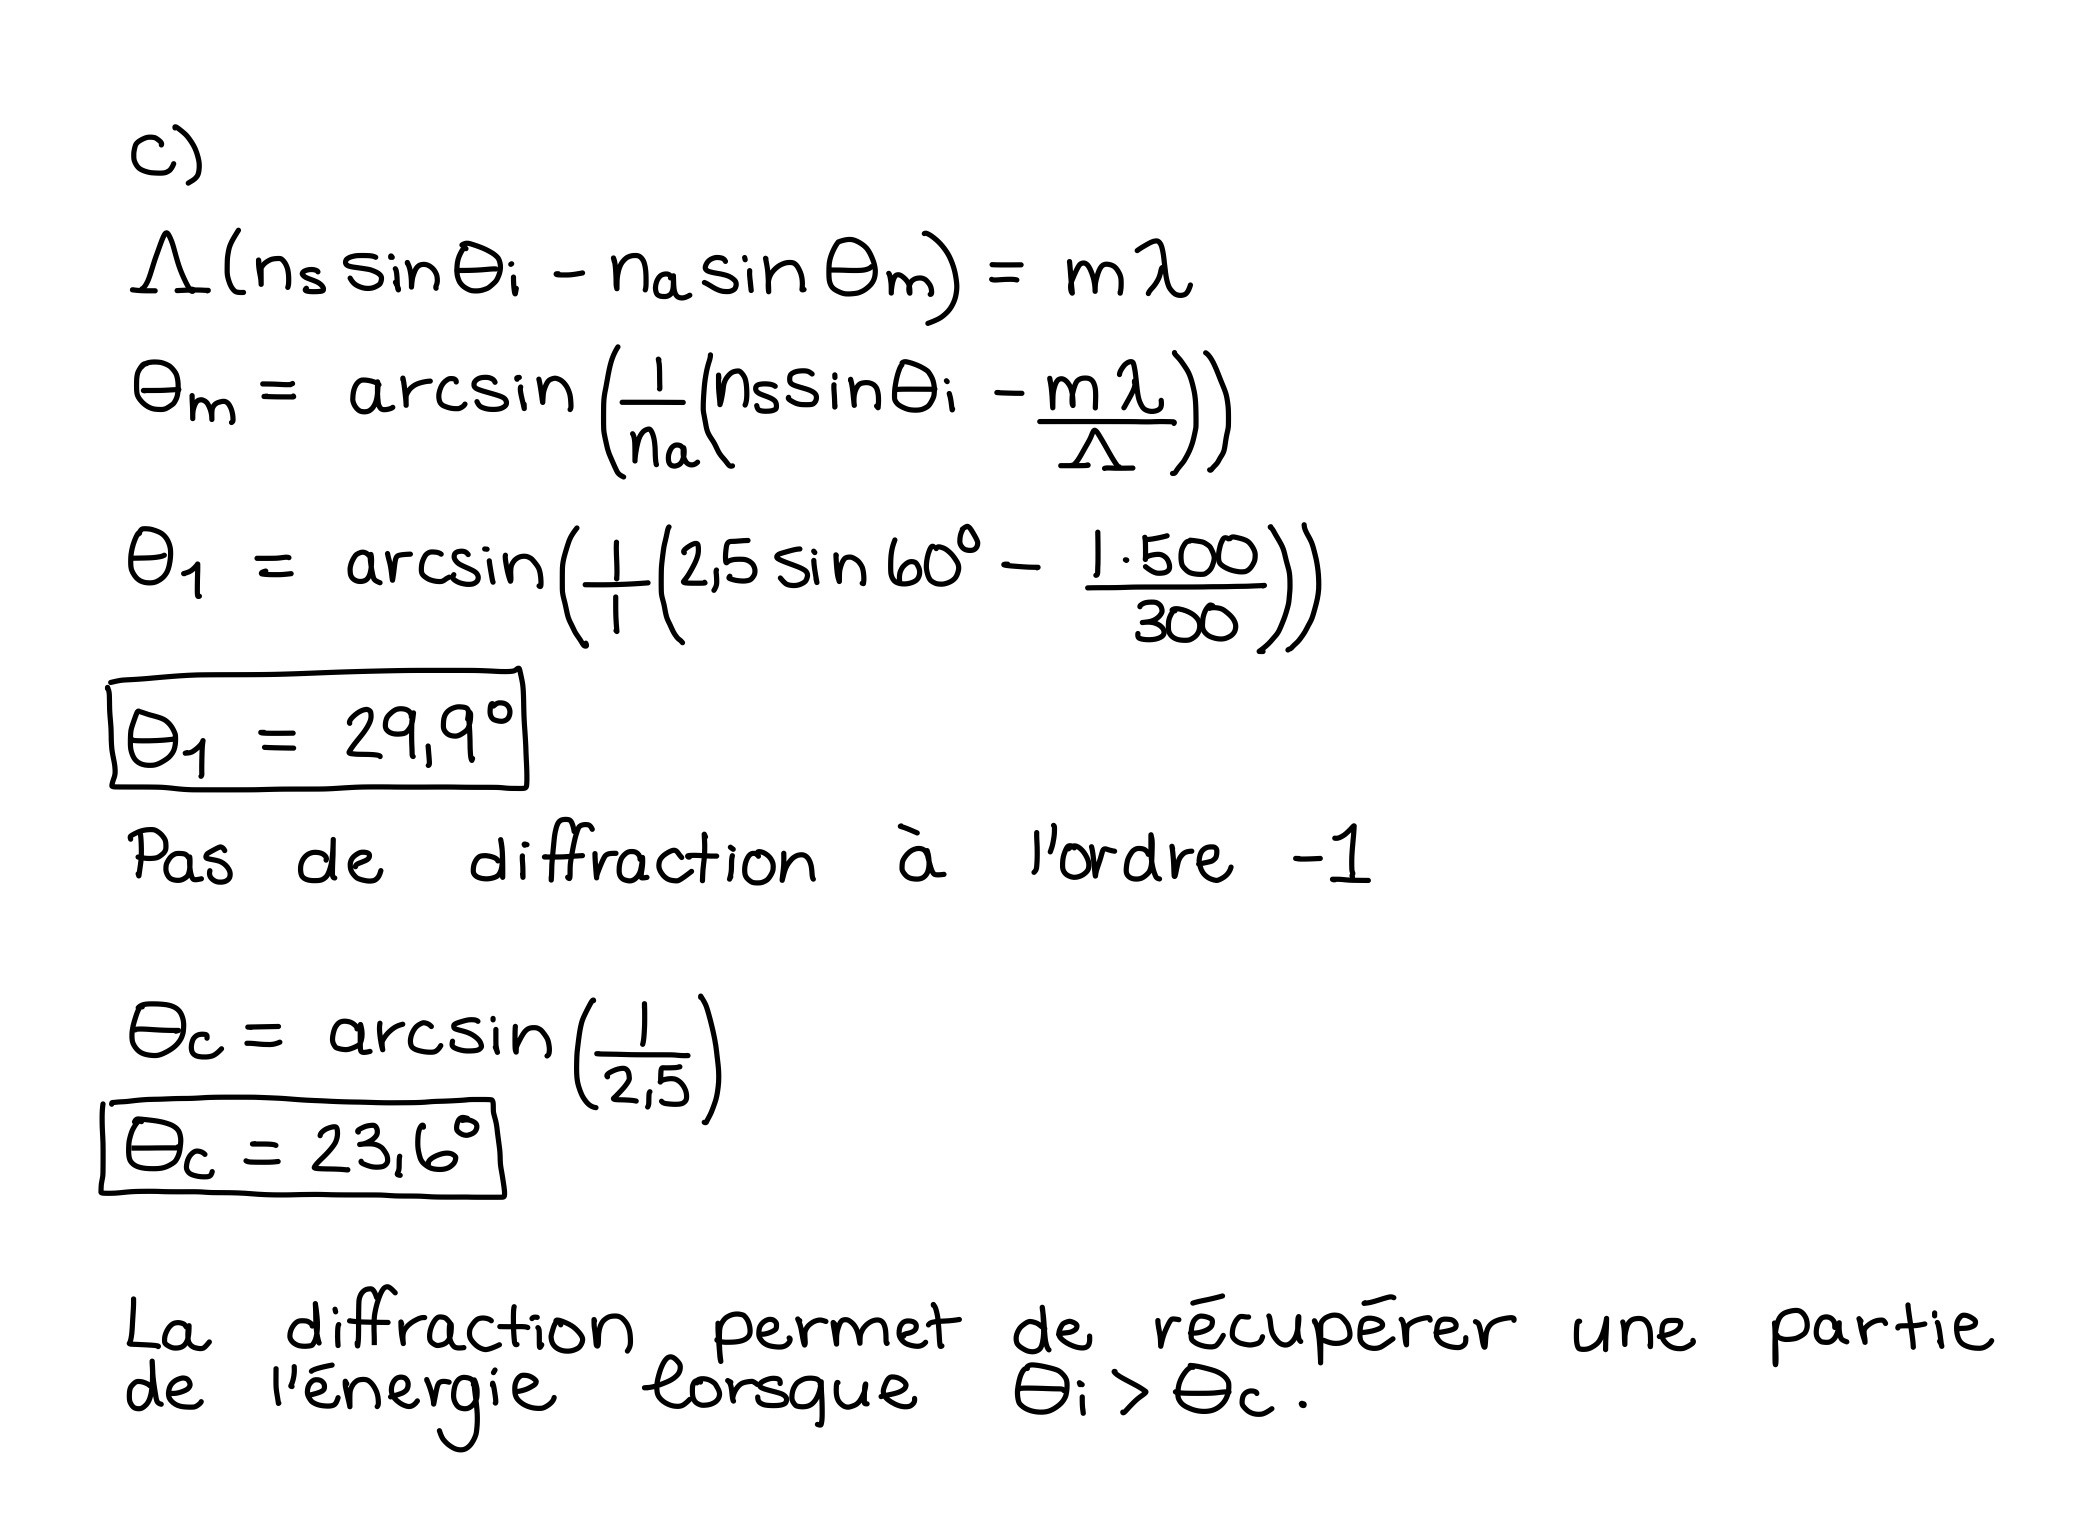 c)
Λ(ns sinθi - na sinθm) = mλ
θm = arcsin(1/na(ns sinθi - mλ/Λ))
θ1 = arcsin(1/1(2,5 sin 60° - 1·500/300))
θ1 = 29,9°
Pas de diffraction à l'ordre -1
θc = arcsin(1/2,5)
θc = 23,6°
La diffraction permet de récupérer une partie
de l'énergie lorsque θi > θc.